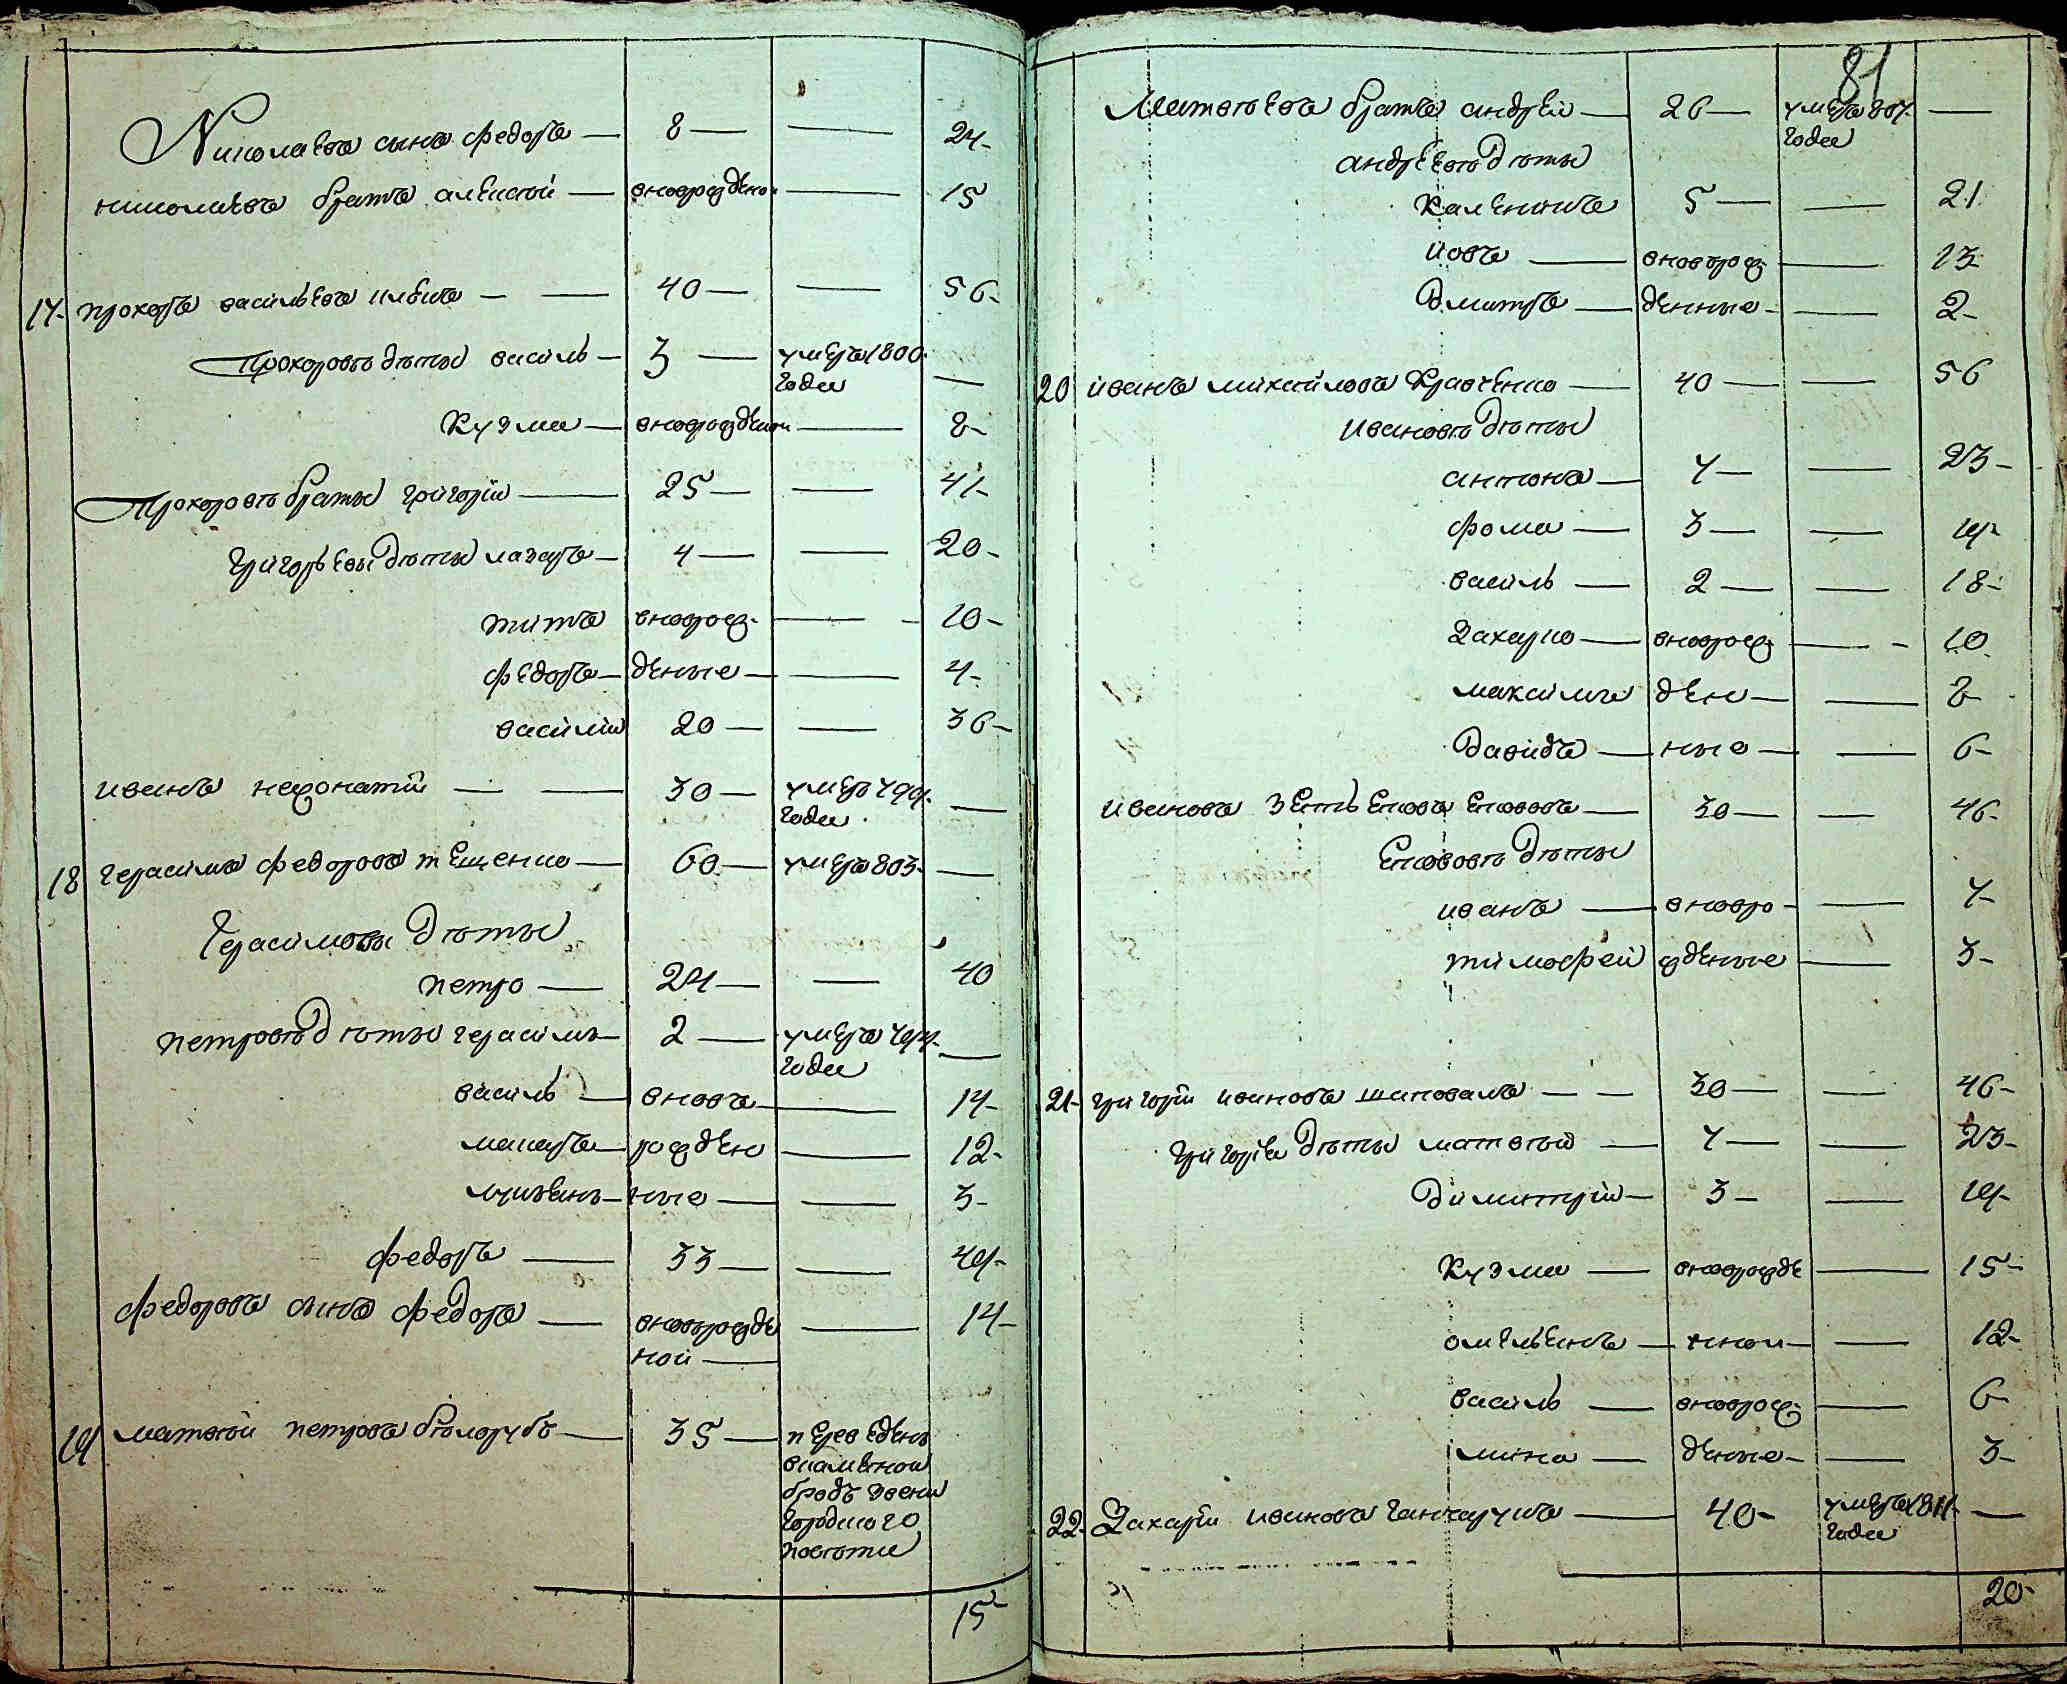 Николаевъ сынъ Федоръ — 8 — — 24-
николаевъ братъ алексей — вновrожденъ — 15
17- прохоръ васильевъ — — 40 — — 56-
Прохоровы дѣти василь — 3 — умеръ 1800- —
года
Кузма — вноврожденъ — 8-
Прохоровъ братъ григорій — 25 — — 41-
григорьевы дѣти лазаръ — 4 — — 20-
титъ вноврож- — 10-
федоръ — деные — — 4-
василій 20 — — 36-
иванъ — — 30 — умеръ 799- —
года
18 герасимъ федоровъ тещенко — 60 — умеръ 803- —
Герасимовы дѣти
петро — 24 — — 40
петровы дѣти герасимъ — 2 — умеръ 799- —
года
василь — вновъ — 14-
макаръ — рожден — 12-
лукъянъ — ные — — 3-
федоръ — 33 — — 49-
федоровъ сынъ федоръ — вноврожде — 14-
ной —
19 матвей петровъ бѣлорубъ — 35 — переведенъ
вкаменой
бродъ звени
городского
повѣта
15
81
Матвеевъ братъ андрей — 26 — умеръ 807- —
года
андреевы дѣти
Каленикъ 5 — — 21
иовъ — вноврож — 13
Дмитръ — денные — — 2-
20 иванъ михайловъ Кравченко — 40 — — 56
ивановы дѣти
антонъ — 7 — — 23-
фома — 3 — — 19-
василь — 2 — — 18-
Захарко — вноврож — - 10
максимъ ден — — 8
давидъ — ные — — 6-
ивановъ зеть — 30 — — 46-
дѣти
иванъ — вновро- — 7-
тимофей жденые — 3-
21- григорій ивановъ шаповалъ — — 30 — — 46-
григорьевы дѣти матвей — 7 — — 23-
димитрій — 3 — — 19-
Кузма — вноврожде — 15-
омельянъ — нной — — 12-
василь — вноврож — 6-
мина — деные — — 3-
22- Захарій ивановъ ганчарукъ — 40- умеръ 811- —
года
20-